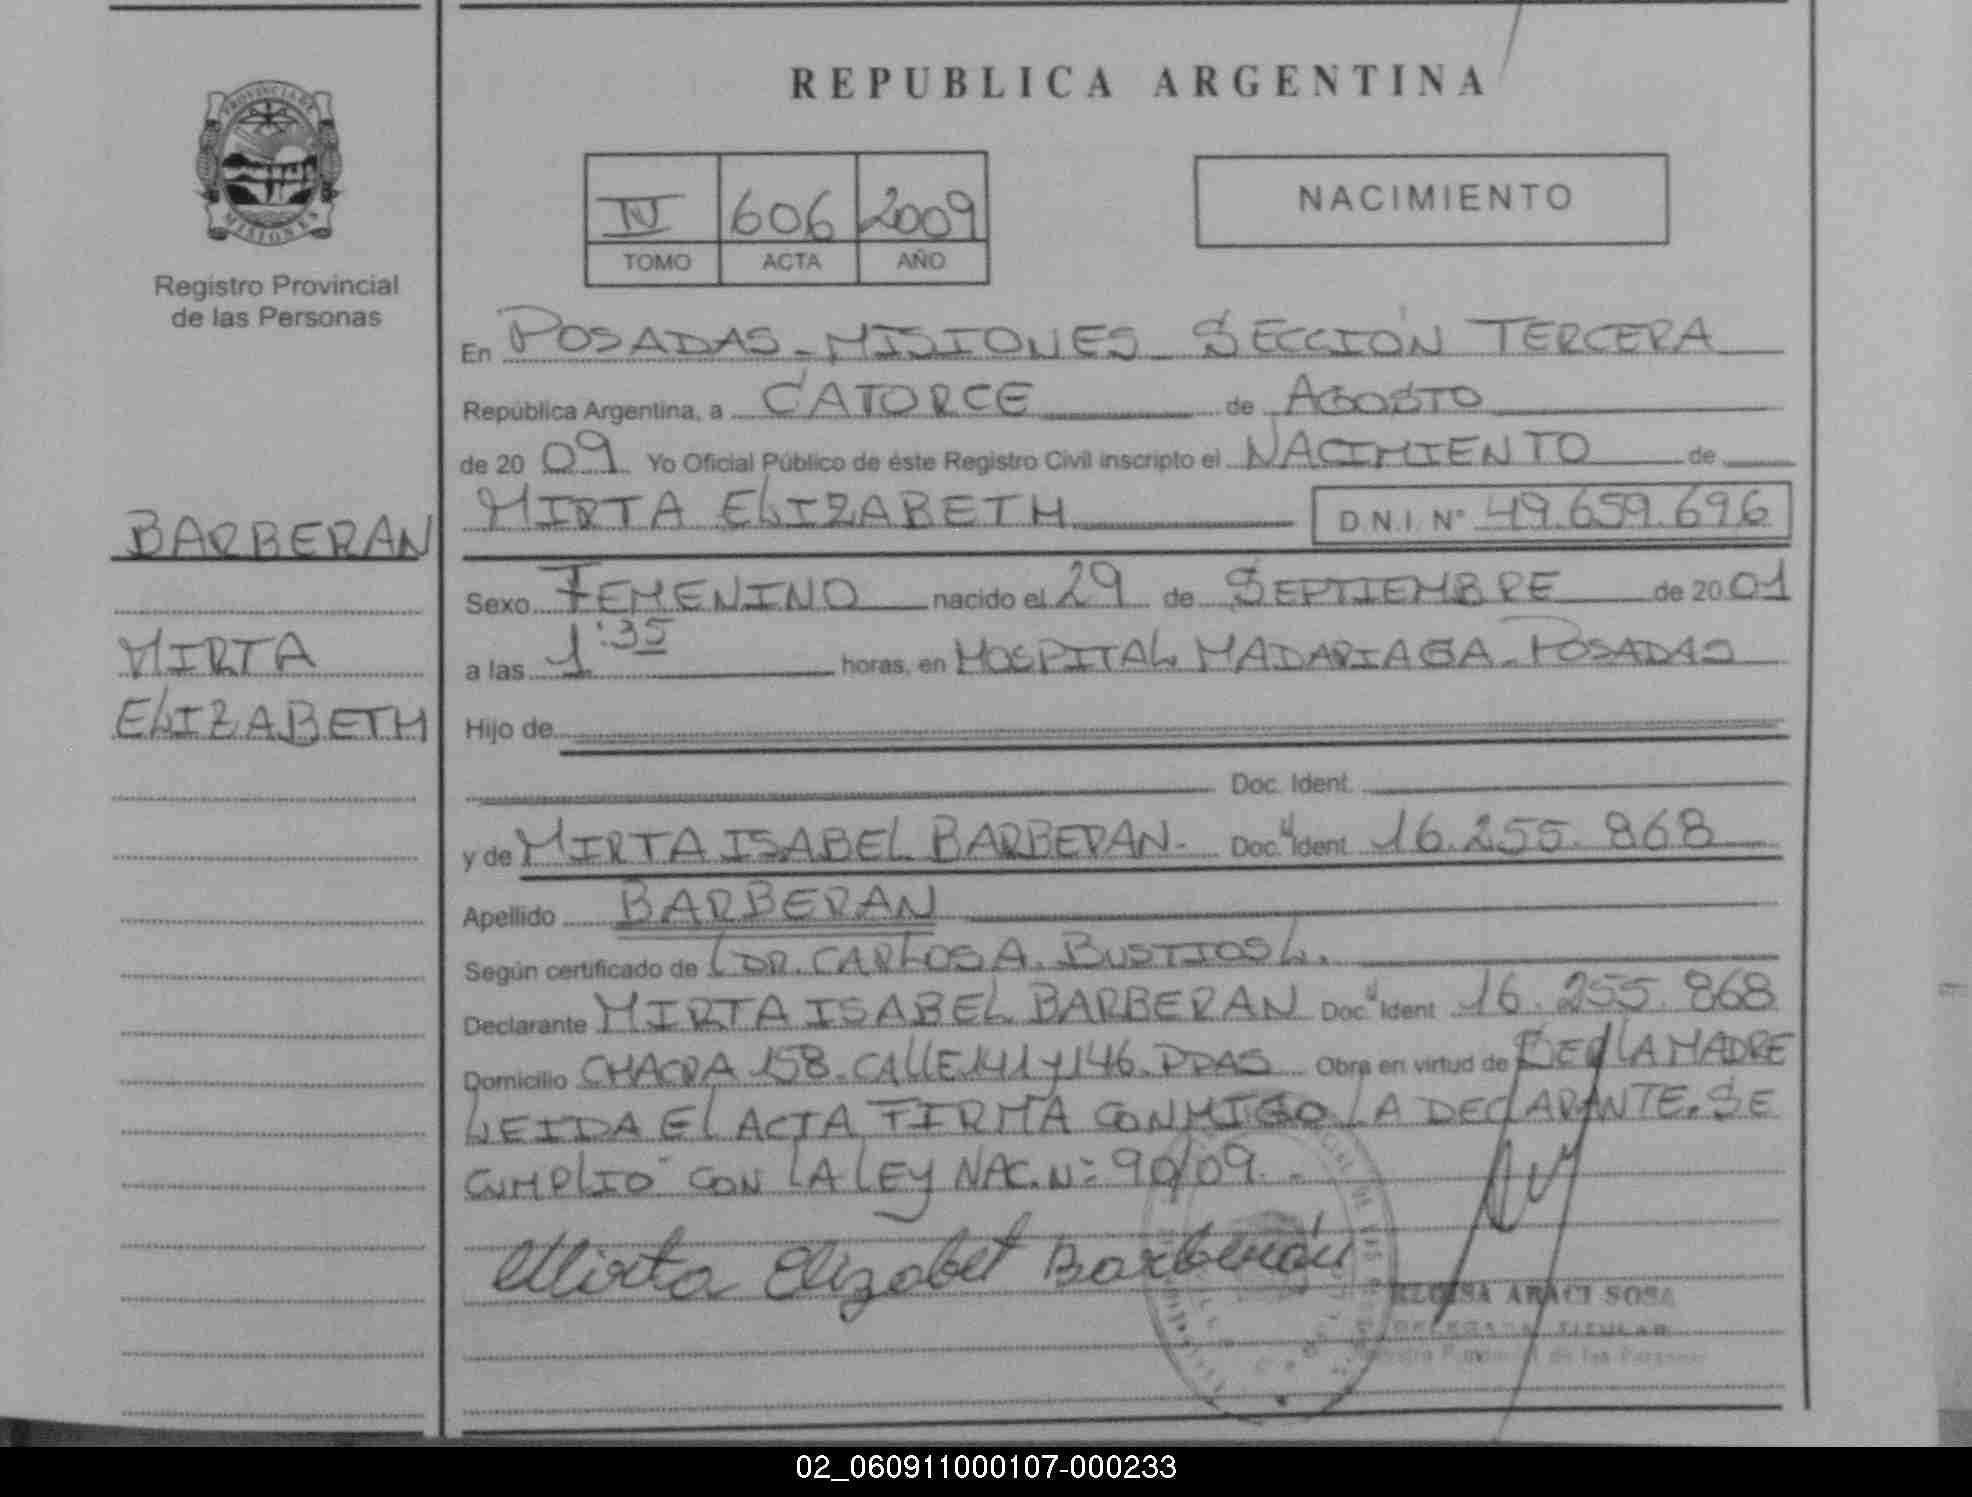 PROVINCIA DE
MISIONES
Registro Provincial
de las Personas
BARBERAN
MIRTA
ELIZABETH
REPUBLICA ARGENTINA
IV 606 2009
TOMO ACTA AÑO
NACIMIENTO
En POSADAS - MISIONES - SECCIÓN TERCERA
República Argentina, a CATORCE de AGOSTO
de 20 09 Yo Oficial Público de éste Registro Civil inscripto el NACIMIENTO de
MIRTA ELIZABETH D.N.I. N° 49.659.696
Sexo FEMENINO nacido el 29 de SEPTIEMBRE de 20 01
a las 1:35 horas, en HOSPITAL MADARIAGA - POSADAS
Hijo de
Doc. Ident.
y de MIRTA ISABEL BARBERAN. Doc. Ident. 16.255.868
Apellido BARBERAN
Según certificado de DR. CARLOS A. BUSTIOS L.
Declarante MIRTA ISABEL BARBERAN Doc. Ident 16.255.868
Domicilio CHACRA 158. CALLE 141 Y 146. PDAS Obra en virtud de SER LA MADRE
LEIDA EL ACTA FIRMA CONMIGO LA DECLARANTE. SE
CUMPLIO CON LA LEY NAC. N: 90/09. -
Mirta Elizabet Barberán
ARACI SOSA
DELEGADA TITULAR
Registro Provincial de las Personas
02_060911000107-000233